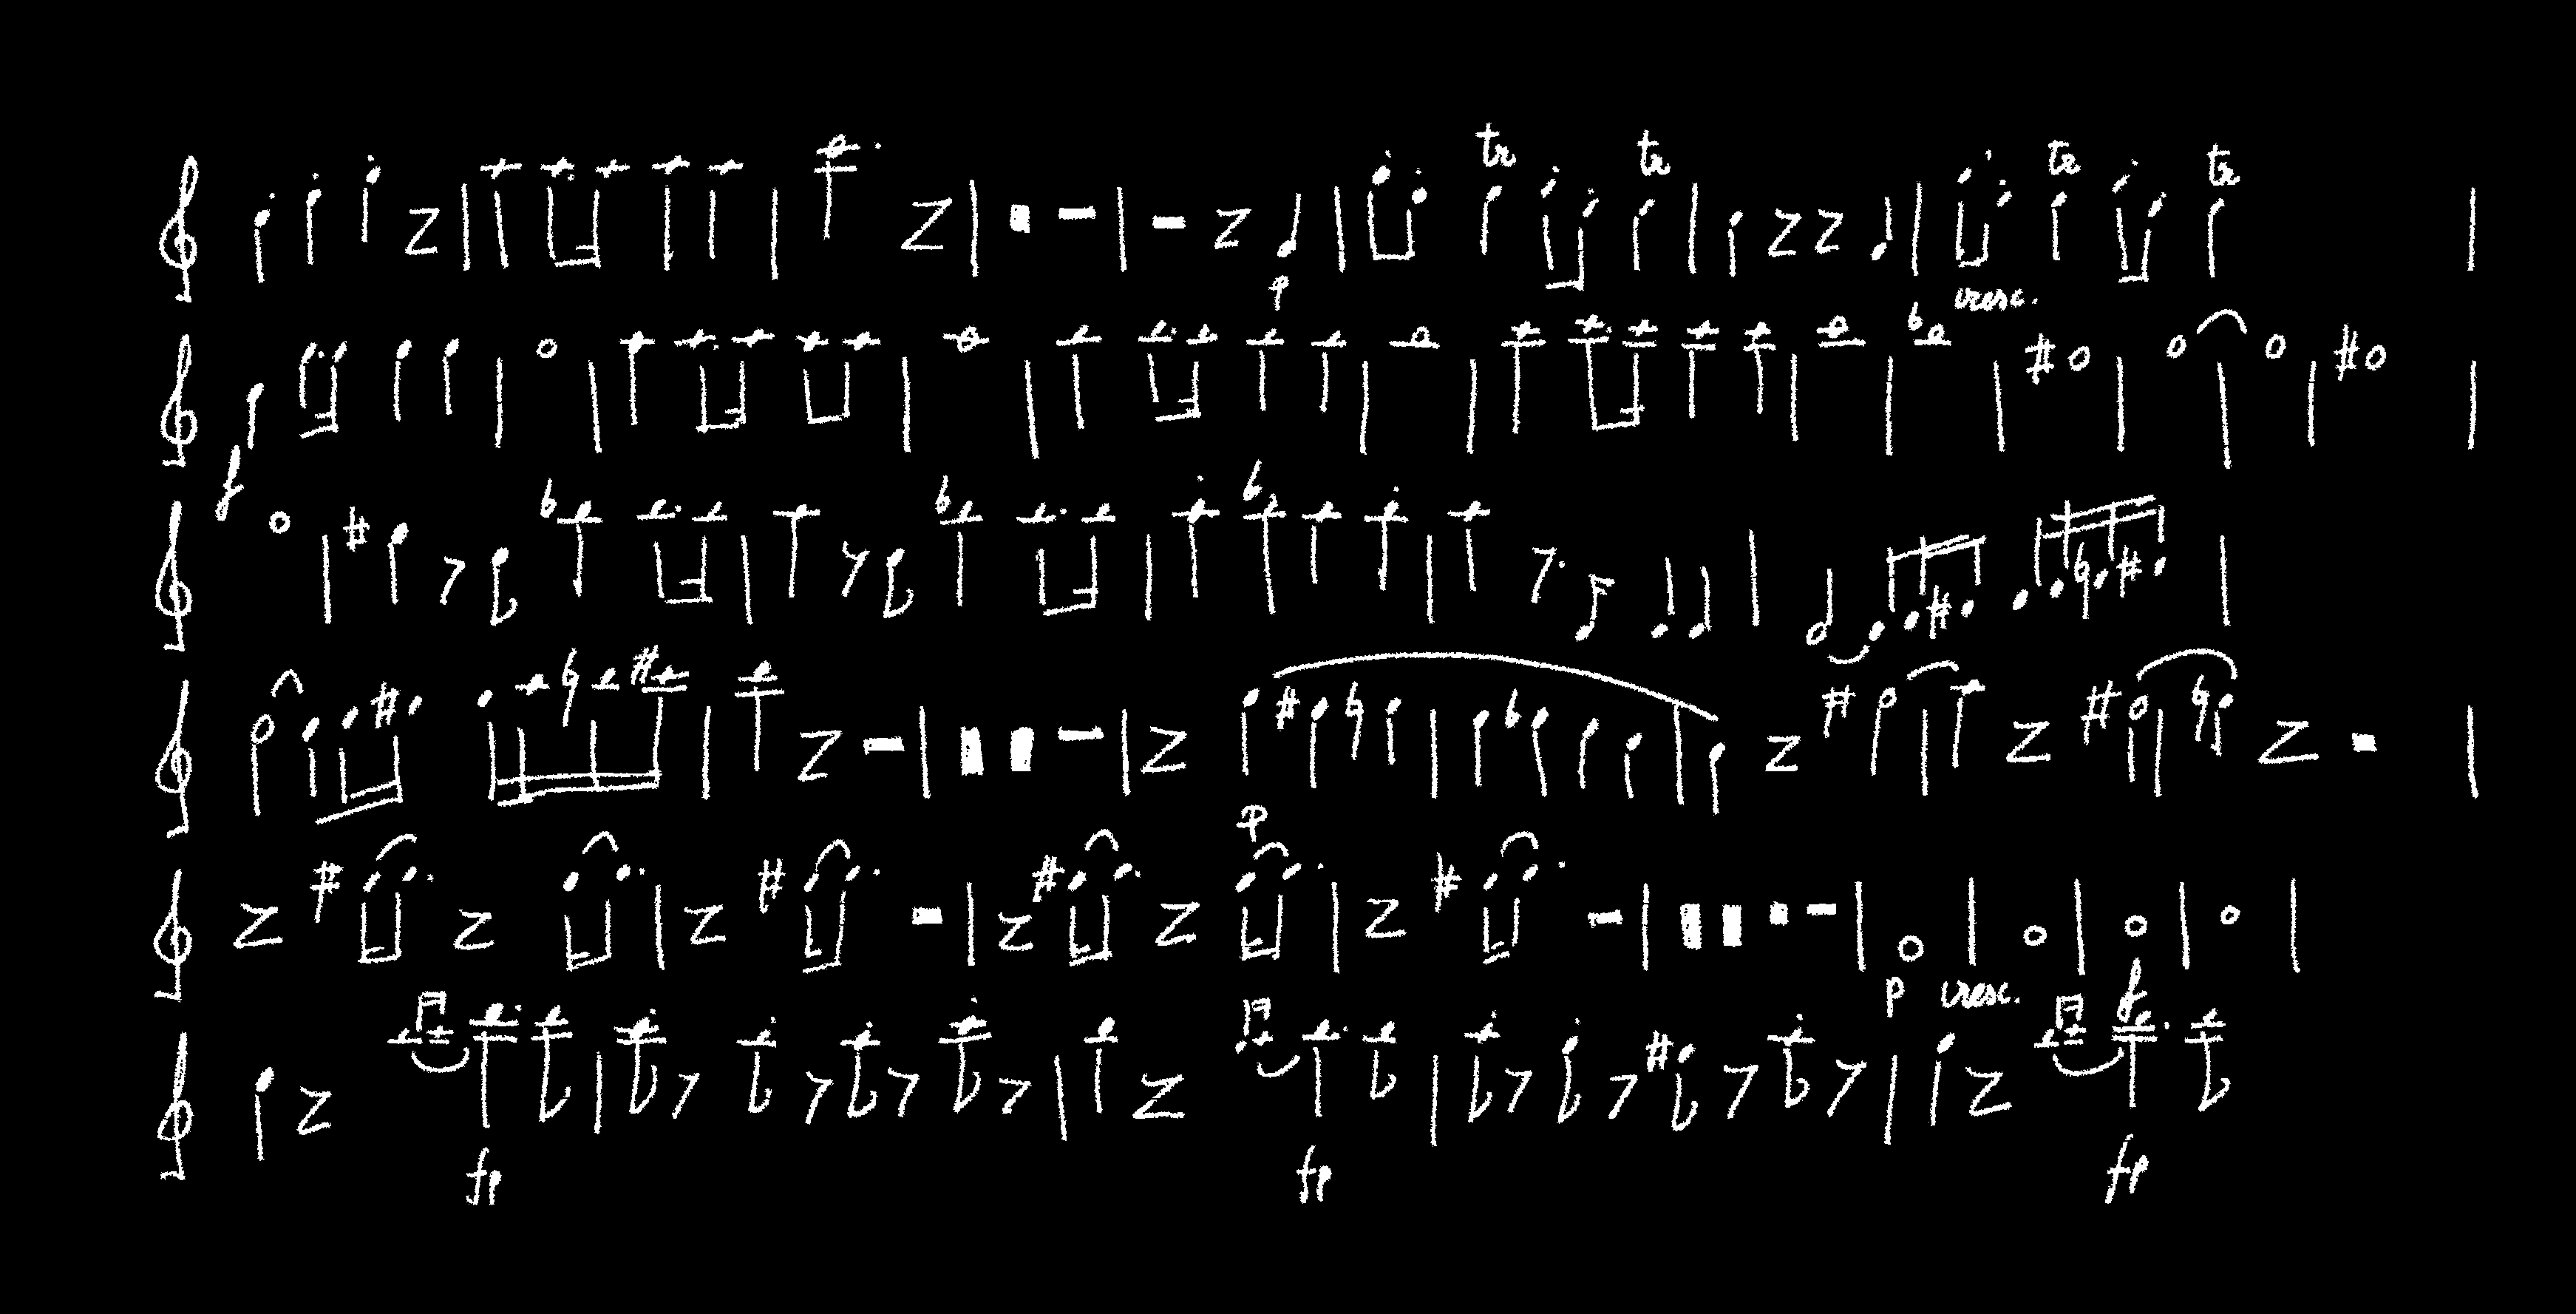 tr tr tr tr
p cresc.
f
p
p cresc. f
fp fp fp